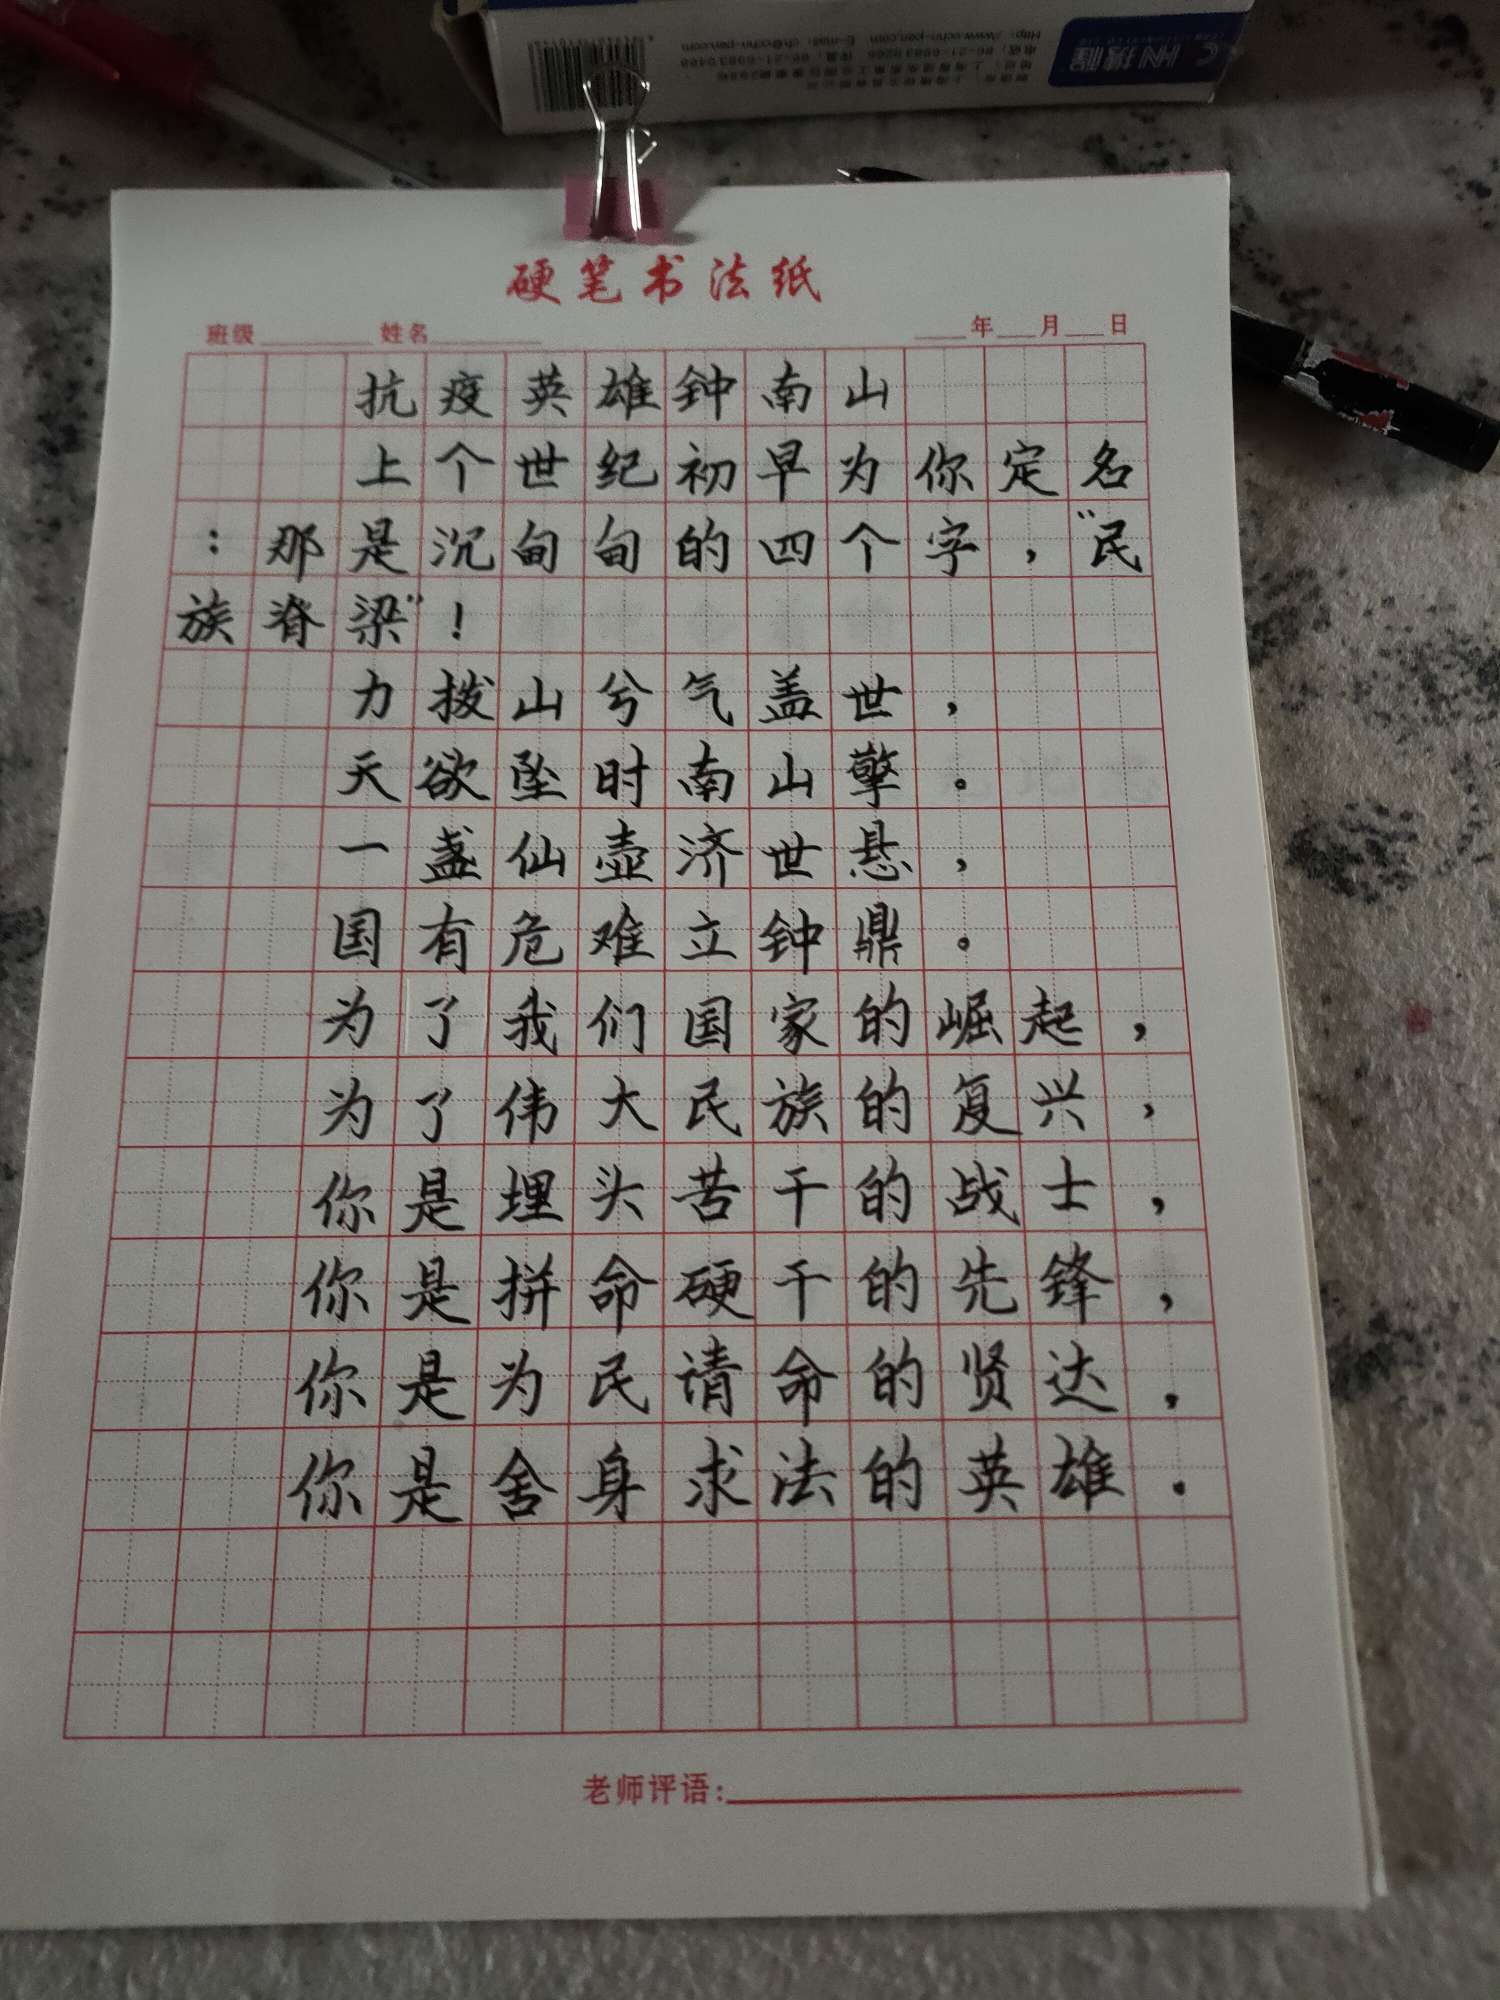 CHN携程
Http: //www.cchn-pen.com
E-mail: ch@cchn-pen.com
硬笔书法纸
班级 姓名 年 月 日
抗疫英雄钟南山
上个世纪初早为你定名
：那是沉甸甸的四个字，“民
族脊梁”！
力拔山兮气盖世，
天欲坠时南山擎。
一盏仙壶济世悬，
国有危难立钟鼎。
为了我们国家的崛起，
为了伟大民族的复兴，
你是埋头苦干的战士，
你是拼命硬干的先锋，
你是为民请命的贤达，
你是舍身求法的英雄.
老师评语: